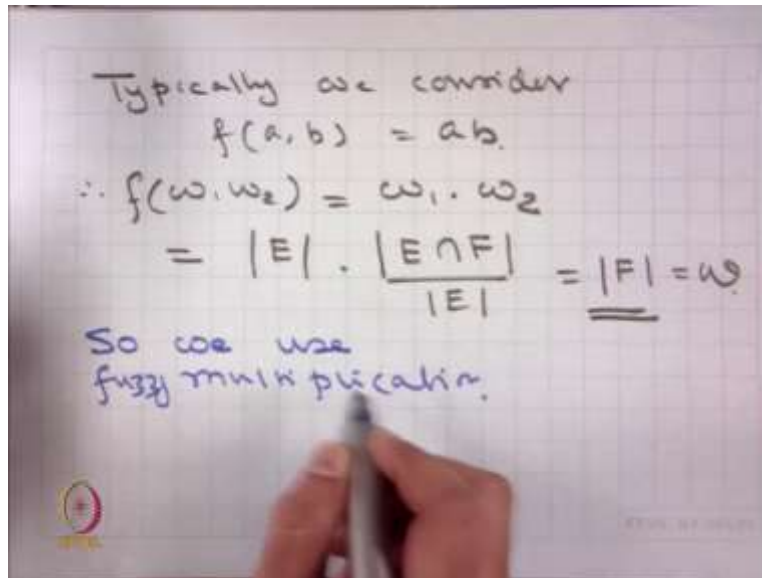 Typically we consider
f(a, b) = ab.
∴ f(ω, ω₂) = ω₁ . ω₂
= |E| . |E ∩ F| / |E| = |F| = ω
So we use
fuzzy multiplication.
NPTEL